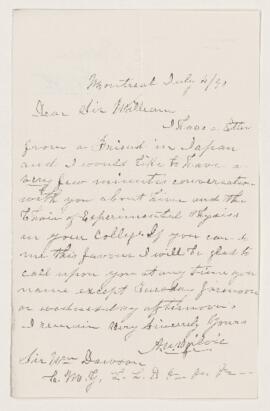 Montreal July 4/91
Dear Sir William
I have a letter
from a Friend in Japan
and I would like to have a
very few minutes conversation
with you about him and the
Chair of Experimental Physics
in your College If you can do
me this favour I will be glad to
call upon you at any time you
name except Tuesday forenoon
or wednesday afternoon
I remain Very Sincerely Yours
Sir Wm Dawson
C. M. G, L. L. D